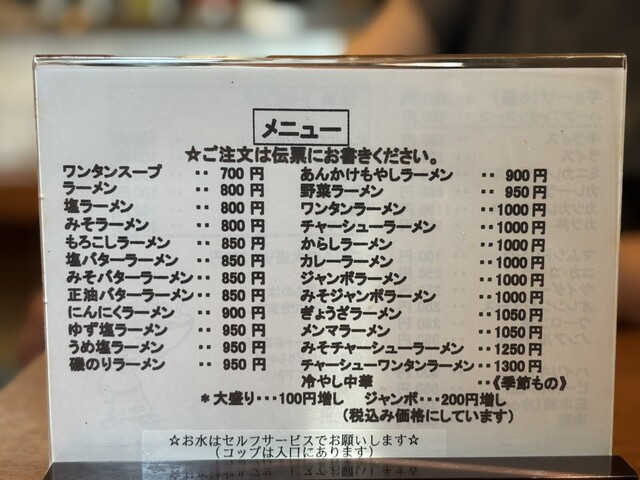 メニュー
☆ご注文は伝票にお書きください。
ワンタンスープ ‥ 700 円
ラーメン ‥ 800 円
塩ラーメン ‥ 800 円
みそラーメン ‥ 800 円
もろこしラーメン ‥ 850 円
塩バターラーメン ‥ 850 円
みそバターラーメン ‥ 850 円
正油バターラーメン ‥ 850 円
にんにくラーメン ‥ 900 円
ゆず塩ラーメン ‥ 950 円
うめ塩ラーメン ‥ 950 円
磯のりラーメン ‥ 950 円
あんかけもやしラーメン ‥ 900 円
野菜ラーメン ‥ 950 円
ワンタンラーメン ‥1000 円
チャーシューラーメン ‥1000 円
からしラーメン ‥1000 円
カレーラーメン ‥1000 円
ジャンボラーメン ‥1000 円
みそジャンボラーメン ‥1000 円
ぎょうざラーメン ‥1050 円
メンマラーメン ‥1050 円
みそチャーシューラーメン ‥1250 円
チャーシューワンタンラーメン ‥1300 円
冷やし中華 ‥《季節もの》
＊大盛り‥‥100円増し ジャンボ‥‥200円増し
（税込み価格にしています）
☆お水はセルフサービスでお願いします☆
（コップは入口にあります）